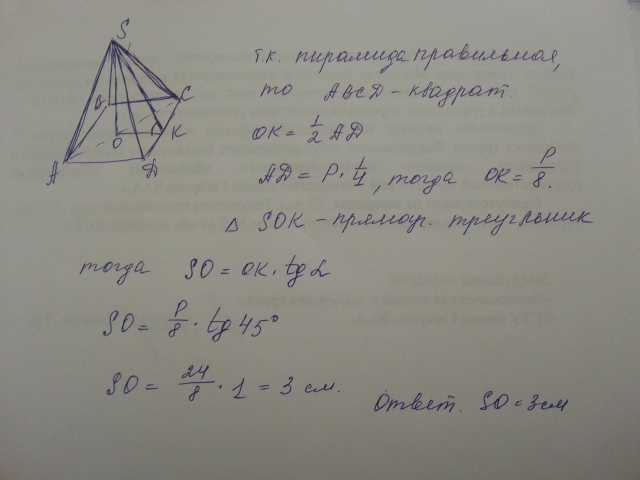 S
B
C
O
K
A
D
т.к. пирамида правильная,
то ABCD - квадрат.
OK = 1/2 AD
AD = P · 1/4, тогда OK = P/8.
△ SOK - прямоуг. треугольник
тогда SO = OK · tg α
SO = P/8 · tg 45°
SO = 24/8 · 1 = 3 см.
Ответ. SO = 3 см